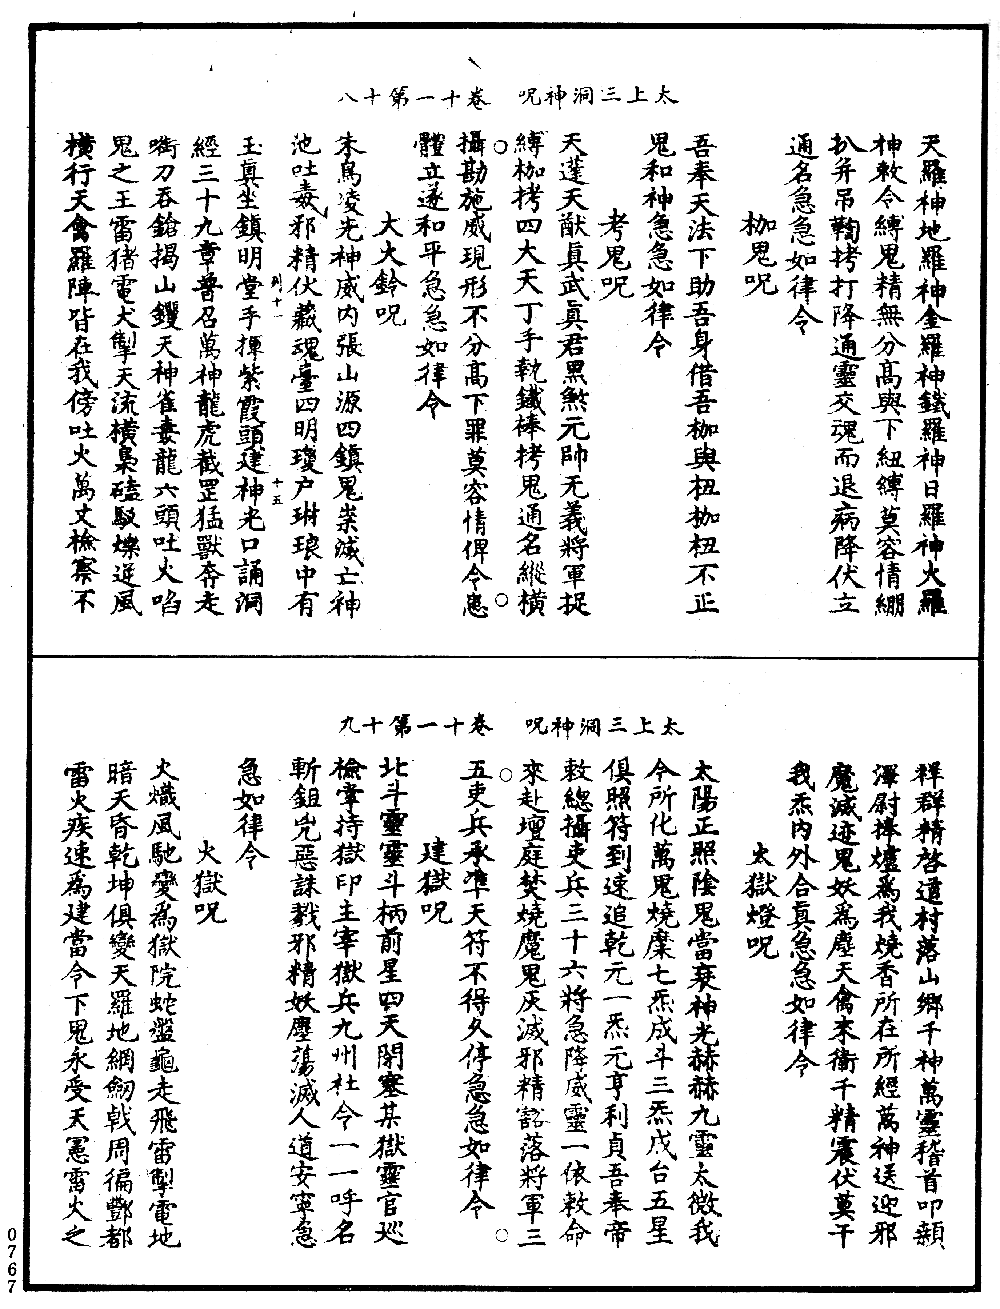 太上三洞神呪　卷十一第十八
天羅神地羅神金羅神鐵羅神日羅神火羅
神敕令縛鬼精無分高與下紐縛莫容情綳
扒并吊鞫拷打降通靈交魂而退病降伏立
通名急急如律令
枷鬼呪
吾奉天法下助吾身借吾枷與杻枷杻不正
鬼和神急急如律令
考鬼呪
天蓬天猷真武真君黑煞元帥无義將軍捉
縛枷拷四大天丁手執鐵棒拷鬼通名縱橫
攝勘施威現形不分高下罪莫容情俾令患
體立遂和平急急如律令
大火鈴呪
朱鳥凌光神威內張山源四鎮鬼祟滅亡神
池吐毒邪精伏藏魂臺四明瓊户琳琅中有
玉真坐鎮明堂手揮紫霞頭建神光口誦洞
經三十九章普召萬神龍虎截罡猛獸奔走
啣刀吞鎗揭山钁天神雀毒龍六頭吐火啗
鬼之王雷猪電犬掣天流橫梟磕駁爍逆風
橫行天禽羅陣皆在我傍吐火萬丈檢察不
列十一
十五
太上三洞神呪　卷十一第十九
祥群精啓道村落山鄉千神萬靈稽首叩顙
澤尉捧爐爲我燒香所在所經萬神送迎邪
魔滅迹鬼妖爲塵天禽末衛千精震伏莫干
我炁內外合真急急如律令
太獄燈呪
太陽正照陰鬼當衰神光赫赫九靈太微我
今所化萬鬼燒糜七炁成斗三炁成台五星
俱照符到速追乾元一炁元亨利貞吾奉帝
敕總攝吏兵三十六將急降威靈一依敕命
來赴壇庭焚燒魔鬼灰滅邪精豁落將軍三
五吏兵承準天符不得久停急急如律令
建獄呪
北斗靈靈斗柄前星四天閉塞某獄靈官巡
檢掌持獄印主宰獄兵九州社令一一呼名
斬鉏兇惡誅戮邪精妖塵蕩滅人道安寧急
急如律令
火獄呪
火熾風馳變爲獄院蛇盤龜走飛雷掣電地
暗天昏乾坤俱變天羅地網劒戟周徧酆都
雷火疾速爲建當令下鬼永受天憲雷火之
0767